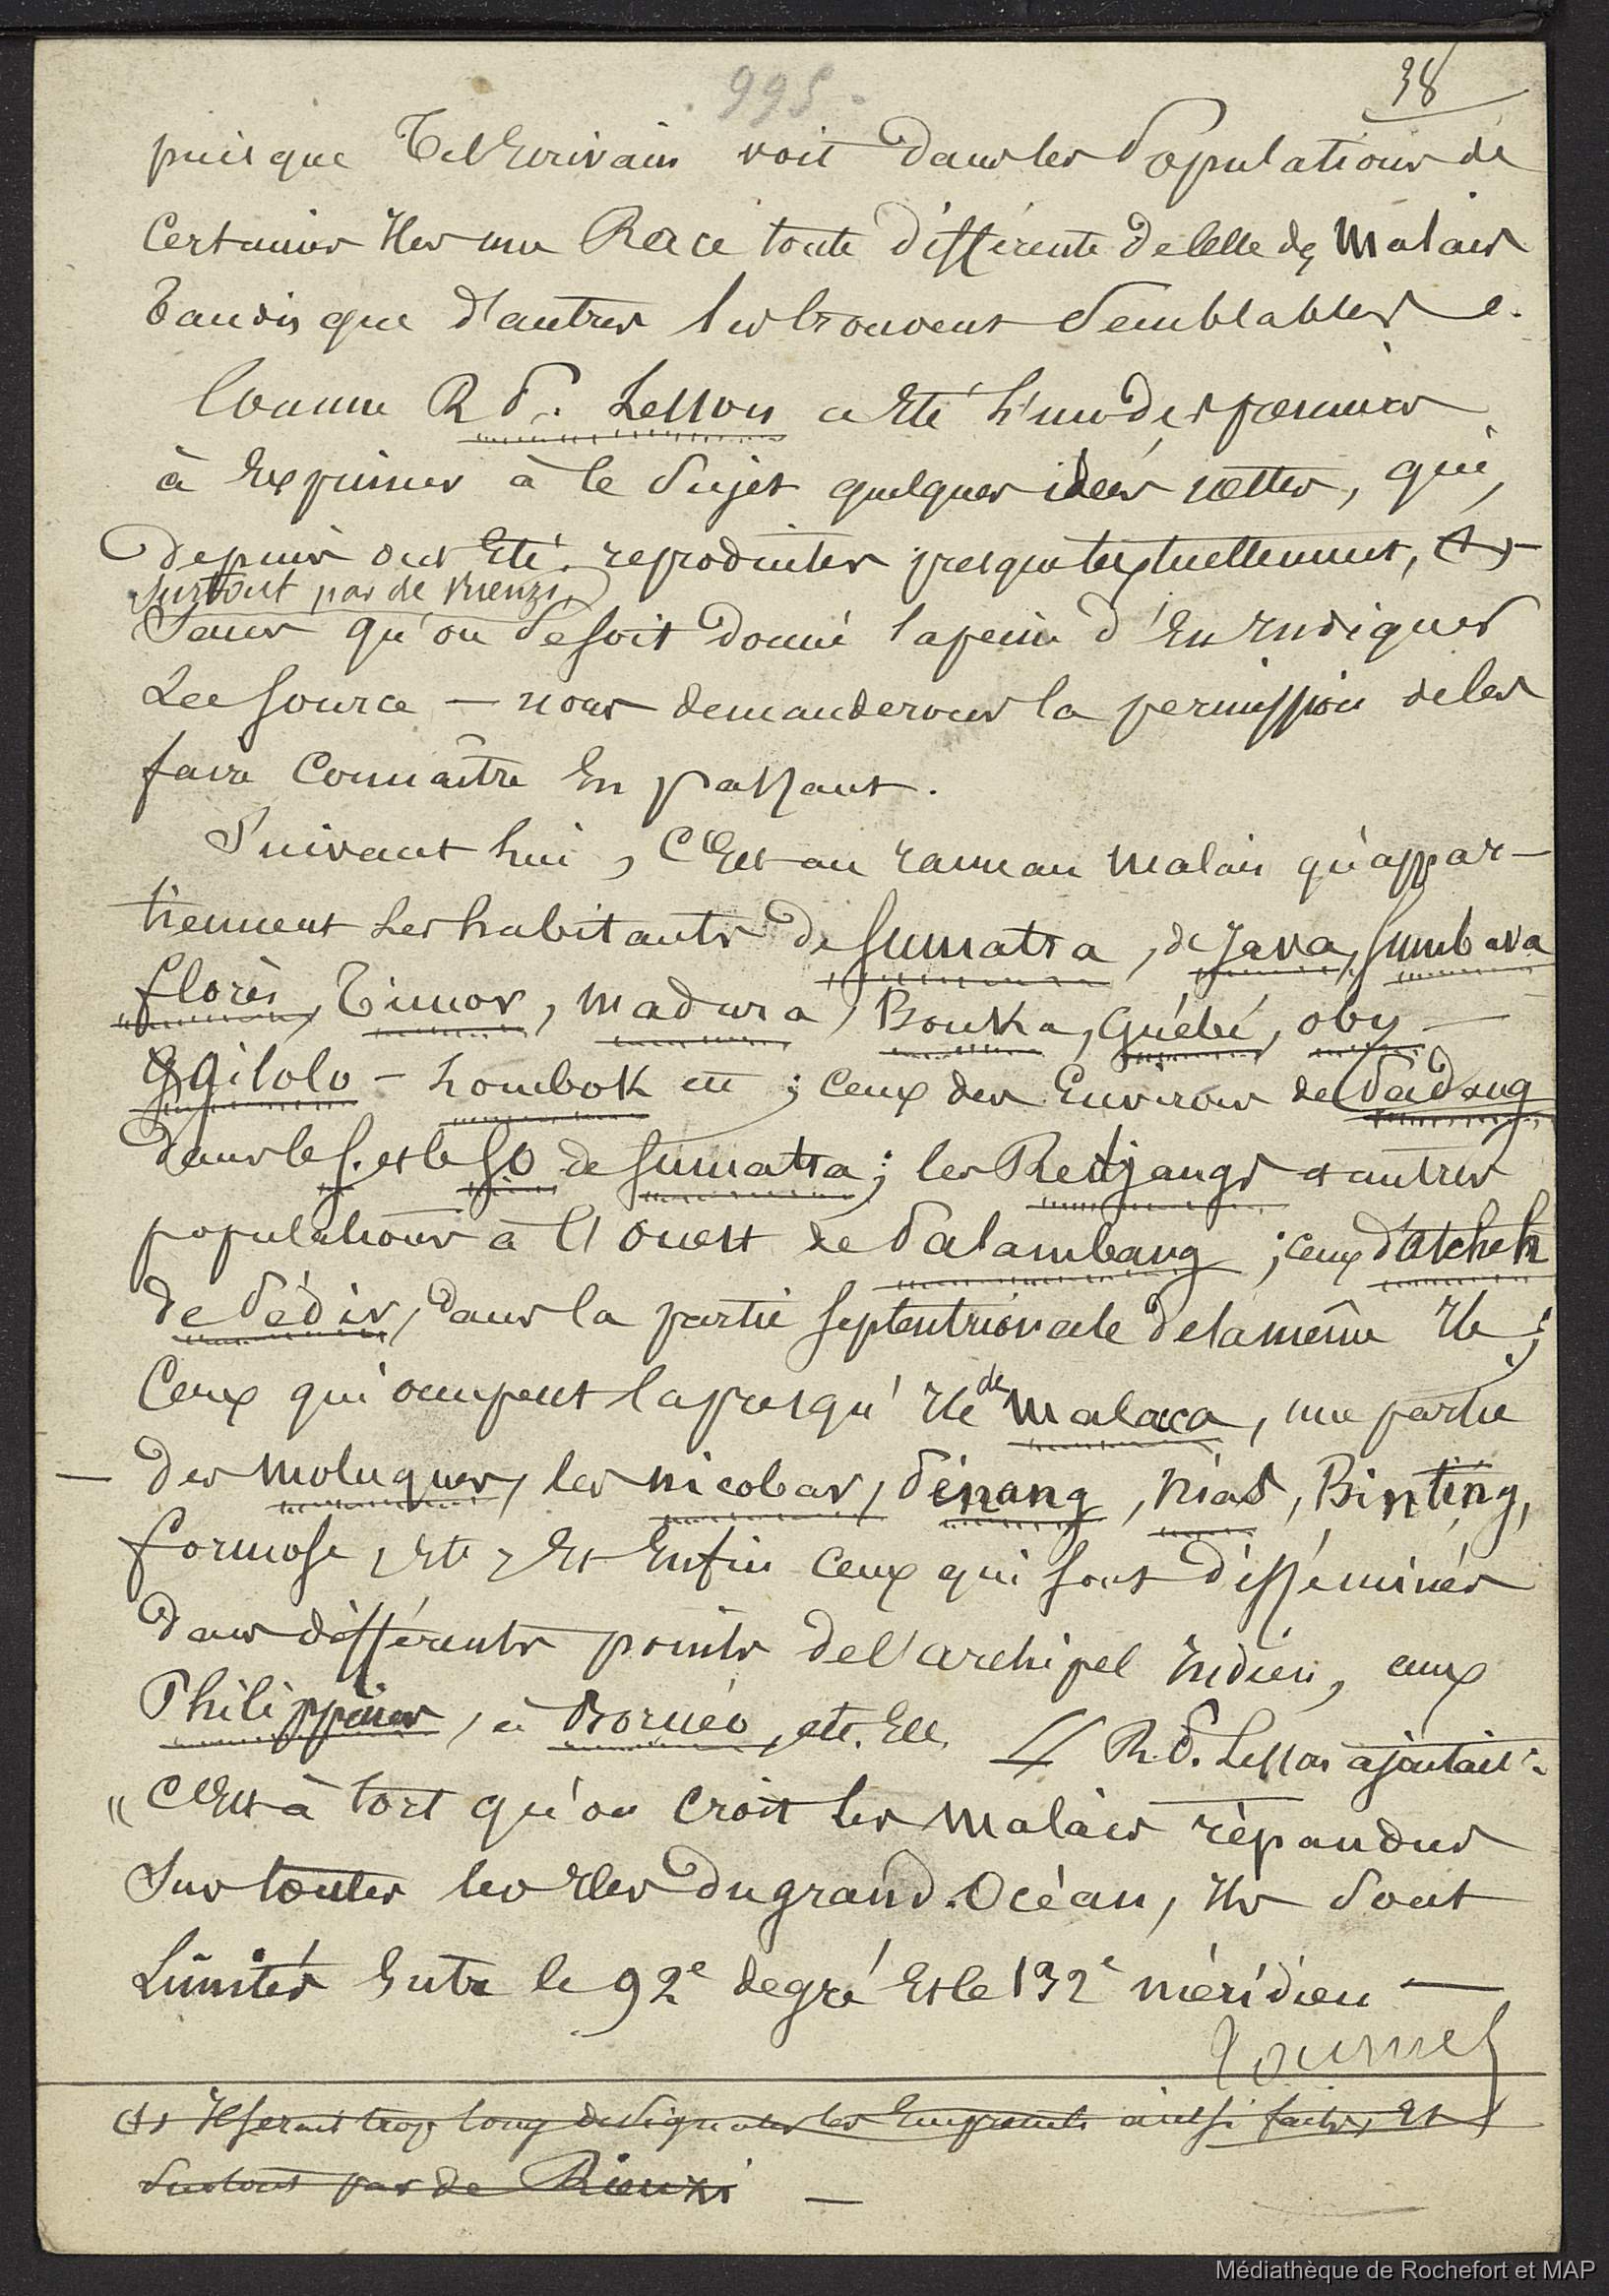 995.
38
puisque Tel Ecrivain voit dans les Populations de
Certaines Iles une Race toute différente de Celle des Malais
Tandis que d'autres les trouvent Semblables.
Comme R P. Lesson a Eté l'un des premiers
à Exprimer à ce Sujet quelques idées nettes, qui,
depuis ont Eté reproduites presque textuellement, (1)
surtout par de Rienzi,
Sans qu'on Se soit donné la peine d'En Indiquer
La source — nous demanderons la permission de les
faire Connaître En passant.
Suivant lui, C'Est au rameau malais qu'appar-
tiennent Les habitants de Sumatra, de Java, Sumbava
florès, Timor, Madura, Bouka, Guébé, oby —
Gilolo - Lombok etc ; ceux des Environs de Padang
dans le S. et le SO de Sumatra ; les Redjangs et autres
populations à l'Ouest de Palambang ; ceux d'Atcheh
de Pédir, dans la partie Septentrionale de la même Ile ;
Ceux qui occupent la presqu'Ile de Malaca, une partie
— des moluques, les nicobar, Pénang, nias, Bintang,
formose, Etc, Et Enfin ceux qui sont disséminés
dans différents points de l'archipel Indien, aux
Philippines, à Bornéo, etc. Etc. // R. P. Lesson ajoutait :
" C'Est à tort qu'on croit les Malais répandus
Sur toutes les Iles du grand Océan, Ils Sont
Limités Entre le 92e degré Et le 132e méridien —
tournez
(1) Il serait trop long de Signaler les Emprunts ainsi faits, Et
Surtout par de Rienzi —
Médiathèque de Rochefort et MAP